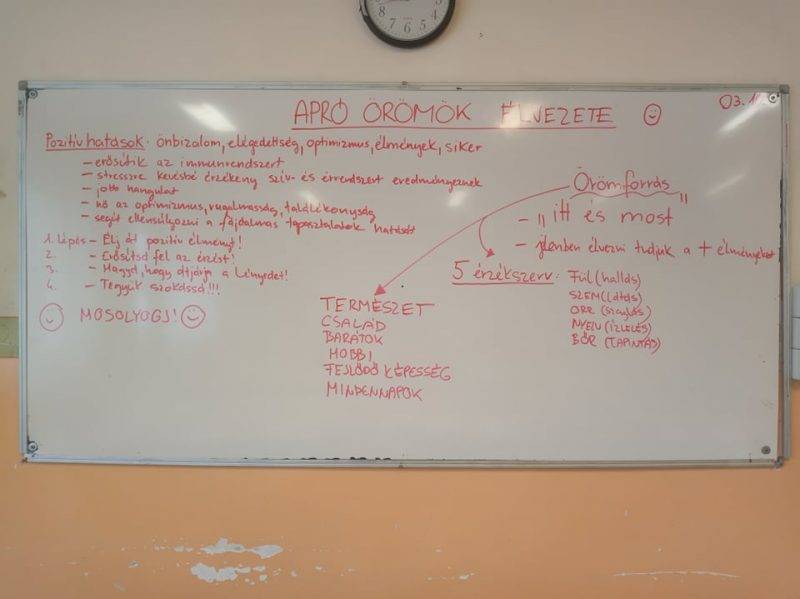 APRÓ ÖRÖMÖK ÉLVEZETE
Pozitív hatások: önbizalom, elégedettség, optimizmus, élmények, siker
– erősítik az immunrendszert
– stresszre kevésbé érzékeny szív- és érrendszert eredményeznek
– jobb hangulat
– nő az optimizmus, rugalmasság, találékonyság
– segít ellensúlyozni a fájdalmas tapasztalatok hatását
1. lépés – Élj át pozitív élményt!
2. – Erősítsd fel az érzést!
3. – Hagyd, hogy átjárja a lényedet!
4. – Tegyük szokássá!!!
MOSOLYOGJ!
Örömforrás
– "itt és most"
– jelenben élvezni tudjuk a + élményeket
5 érzékszerv: FÜL (hallás)
SZEM (látás)
ORR (szaglás)
NYELV (ÍZLELÉS)
BŐR (TAPINTÁS)
TERMÉSZET
CSALÁD
BARÁTOK
HOBBI
FEJLŐDŐ KÉPESSÉG
MINDENNAPOK
9 8 7 6 5 4